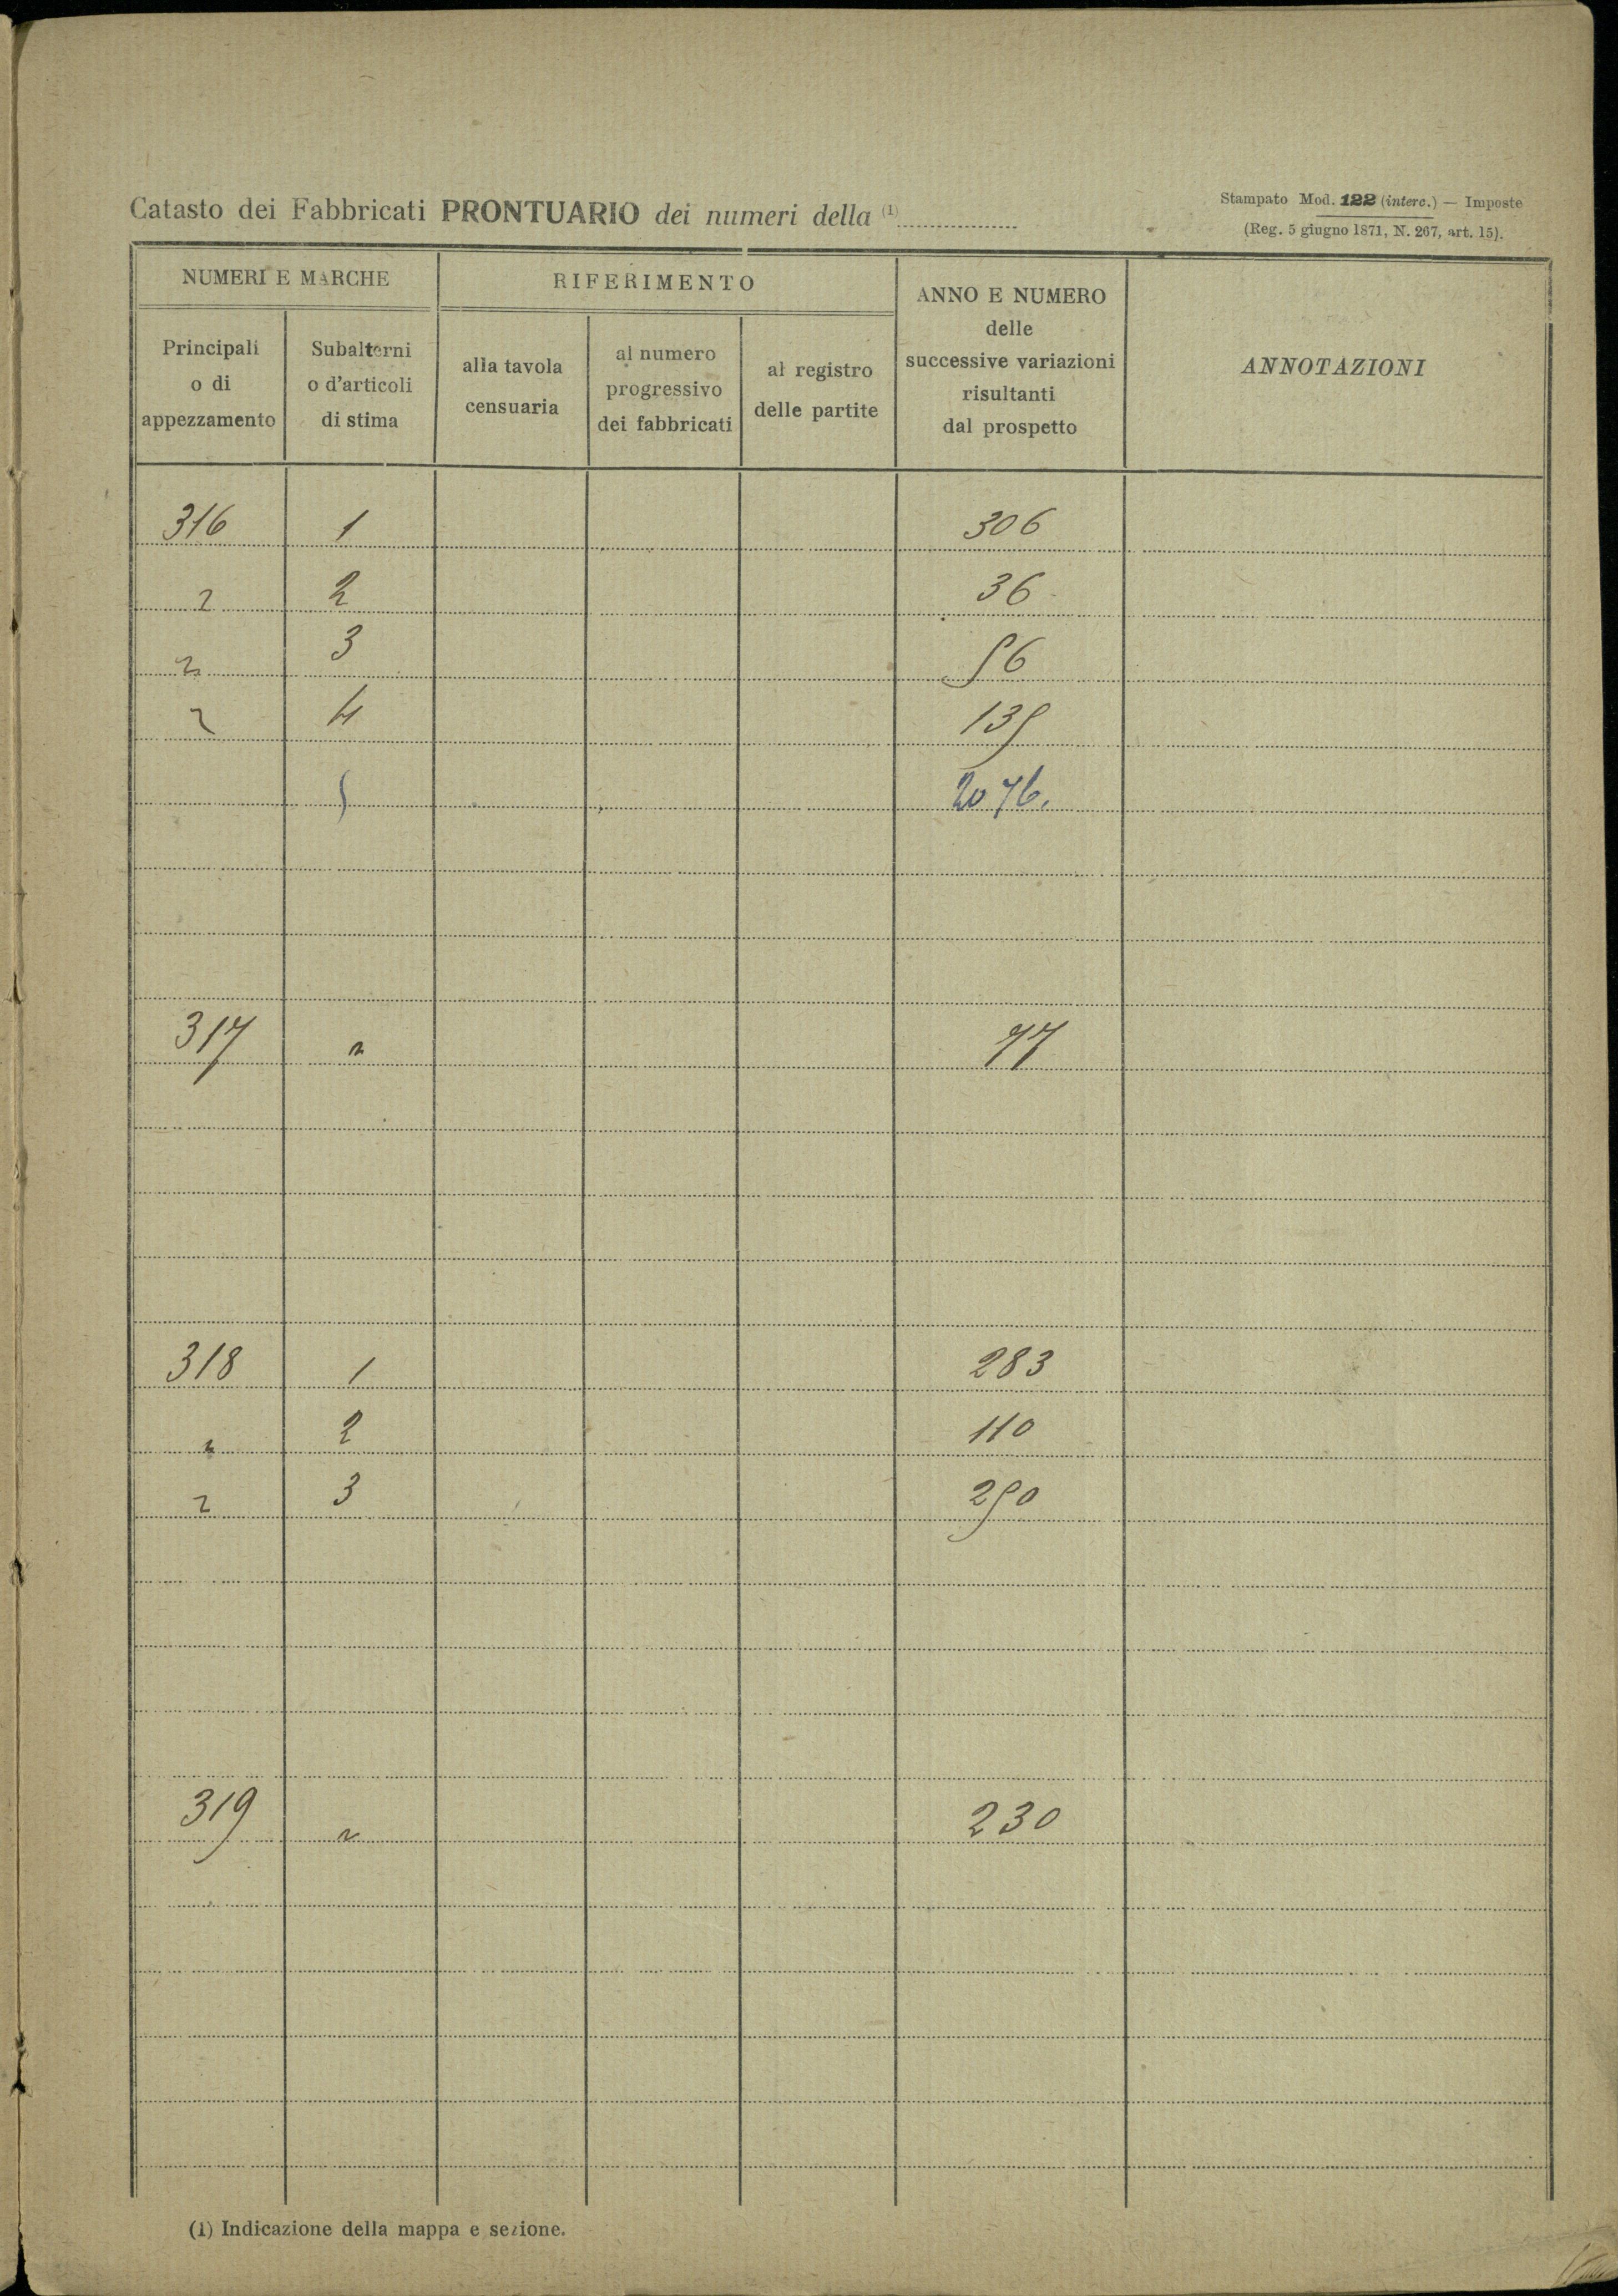 Catasto dei Fabbricati PRONTUARIO dei numeri della (1)
Stampato Mod. 122 (interc.) — Imposte
(Reg. 5 giugno 1871, N. 267, art. 15).
NUMERI E MARCHE
RIFERIMENTO
ANNO E NUMERO
delle
successive variazioni
risultanti
dal prospetto
ANNOTAZIONI
Principali
o di
appezzamento
Subalterni
o d'articoli
di stima
alla tavola
censuaria
al numero
progressivo
dei fabbricati
al registro
delle partite
316 1 306
" 2 36
" 3 56
" 4 135
5 2076.
317 " 77
318 1 283
" 2 110
" 3 250
319 " 230
(1) Indicazione della mappa e sezione.